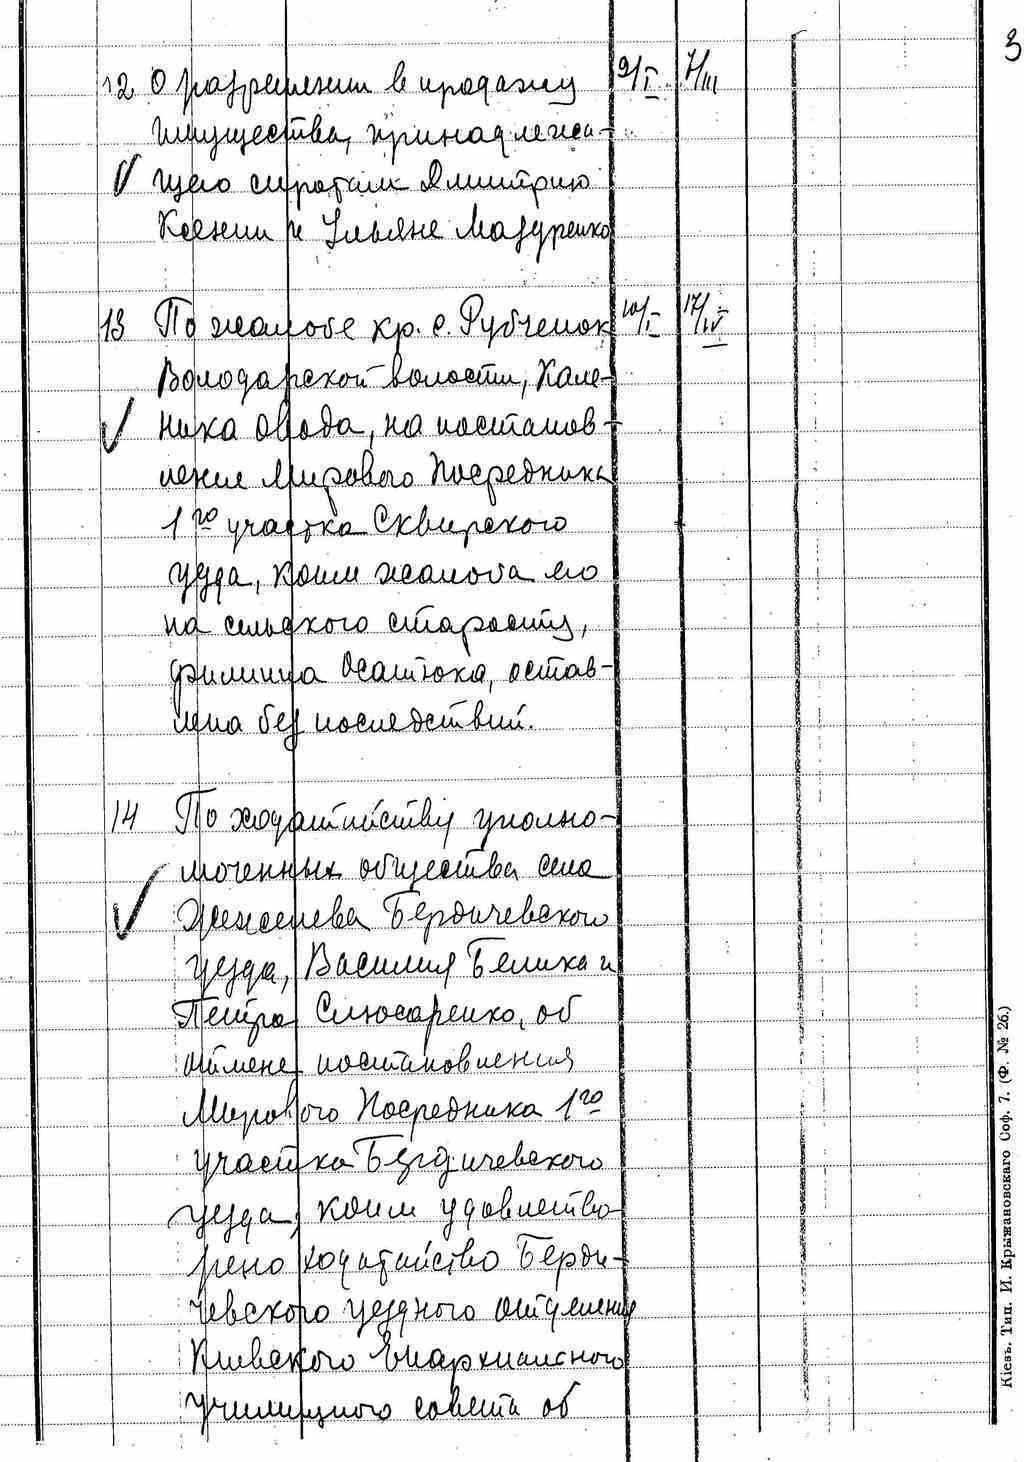 3
12 О разрешении в продажу 9/I 7/III
имущества, принадлежа-
щего сиротам Дмитрию
Ксении и Ульяне Мазуренко
13 По жалобе кр. с. Рубченок 10/I 17/IV
Володарской волости, Кале-
ника Овода, на постанов-
ление Мирового Посредника
1го участка Сквирского
уезда, коим жалоба его
на сельского старосту,
Филиппа Осатюка, остав-
лена без последствий.
14 По ходатайству уполно-
моченных общества села
Жежелева Бердичевского
уезда, Василия Белика и
Петра Слюсаренко, об
отмене постановления
Мирового Посредника 1го
участка Бердичевского
уезда, коим удовлетво-
рено ходатайство Берди-
чевского уездного отделения
Киевского Епархиального
училищного совета об
Кіевъ. Тип. И. Крыжановскаго Соф. 7. (Ф. № 26.)